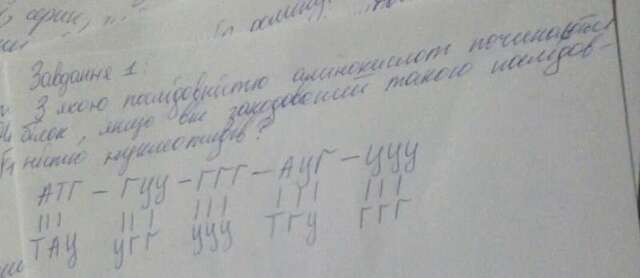 Завдання 1:
З якою послідовністю амінокислот починається
білок, якщо він закодований такою послідов-
ністю нуклеотидів?
АТГ – ГЦЦ – ГГГ – АЦГ – ЦЦЦ
ТАЦ ЦГГ ЦЦЦ ТГЦ ГГГ